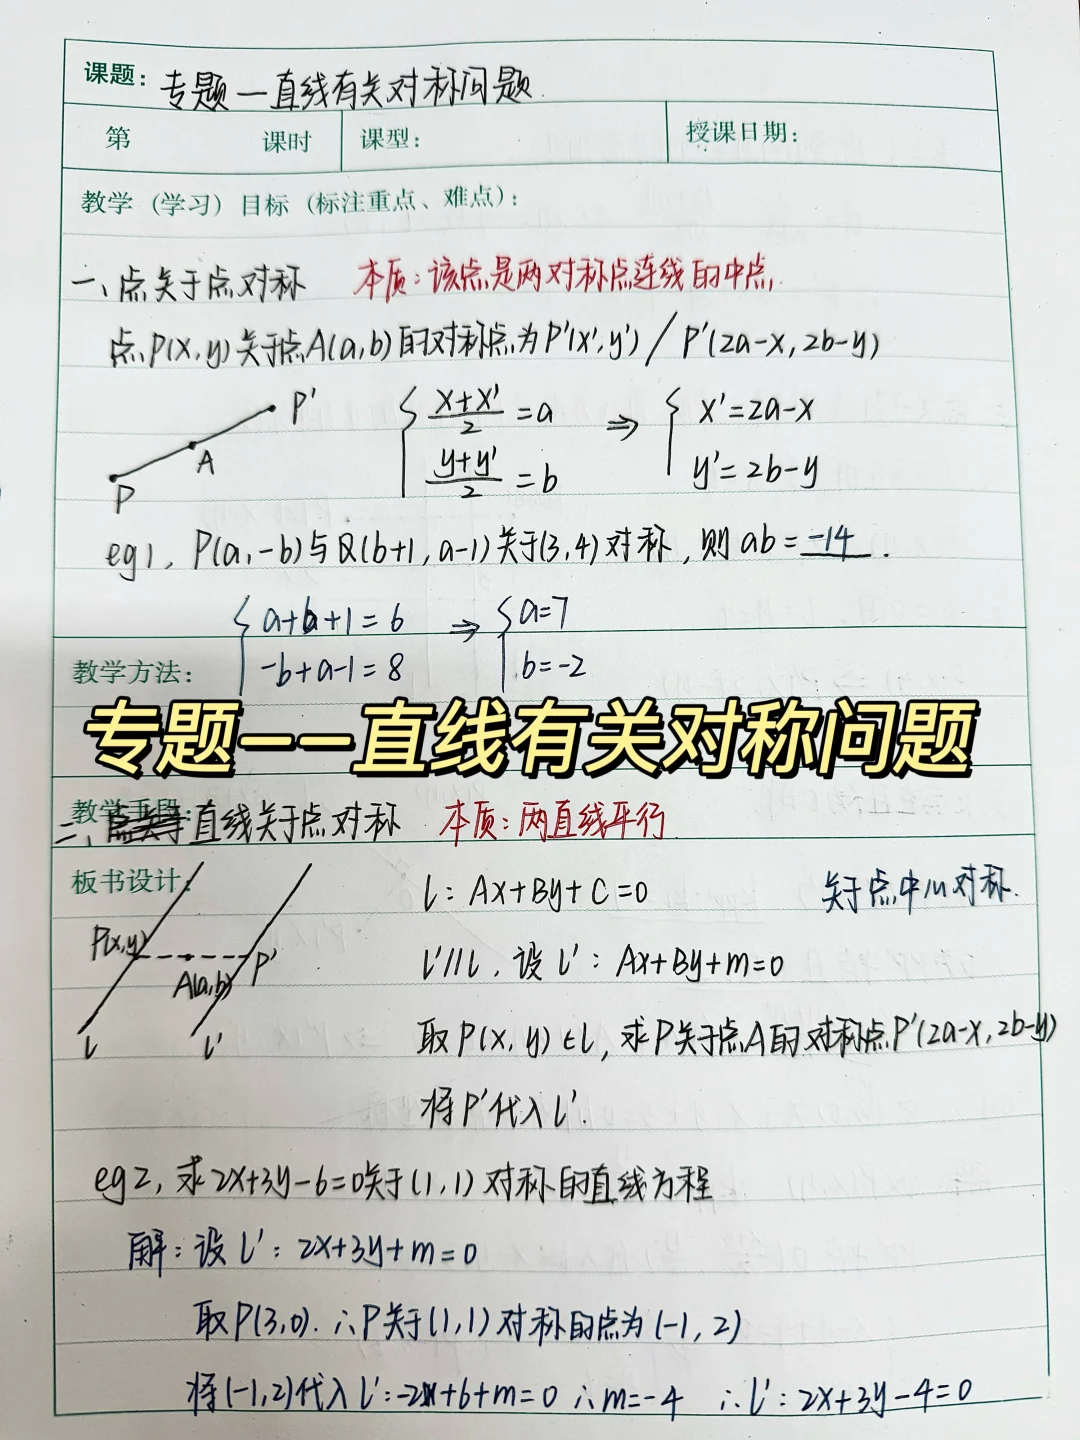 课题：专题一直线有关对称问题
第 课时 课型： 授课日期：
教学（学习）目标（标注重点、难点）：
一、点关于点对称 本质：该点是两对称点连线的中点,
点P(x,y)关于点A(a,b)的对称点为P'(x',y') / P'(2a-x,2b-y)
P'
A
P
{ (x+x')/2 = a ⇒ { x'=2a-x
(y+y')/2 = b y'=2b-y
eg1, P(a,-b)与Q(b+1,a-1)关于(3,4)对称,则ab=-14.
{ a+b+1=6 ⇒ { a=7
-b+a-1=8 b=-2
教学方法：
专题——直线有关对称问题
教学手段：
二、直线关于点对称 本质：两直线平行
板书设计：
l：Ax+By+C=0 关于点中心对称.
P(x,y)
A(a,b)
P'
l
l'
l'//l,设l'：Ax+By+m=0
取P(x,y)∈l,求P关于点A的对称点P'(2a-x,2b-y)
将P'代入l'.
eg2,求2x+3y-6=0关于(1,1)对称的直线方程
解：设l'：2x+3y+m=0
取P(3,0).∴P关于(1,1)对称的点为(-1,2)
将(-1,2)代入l'：-2+6+m=0 ∴m=-4 ∴l'：2x+3y-4=0